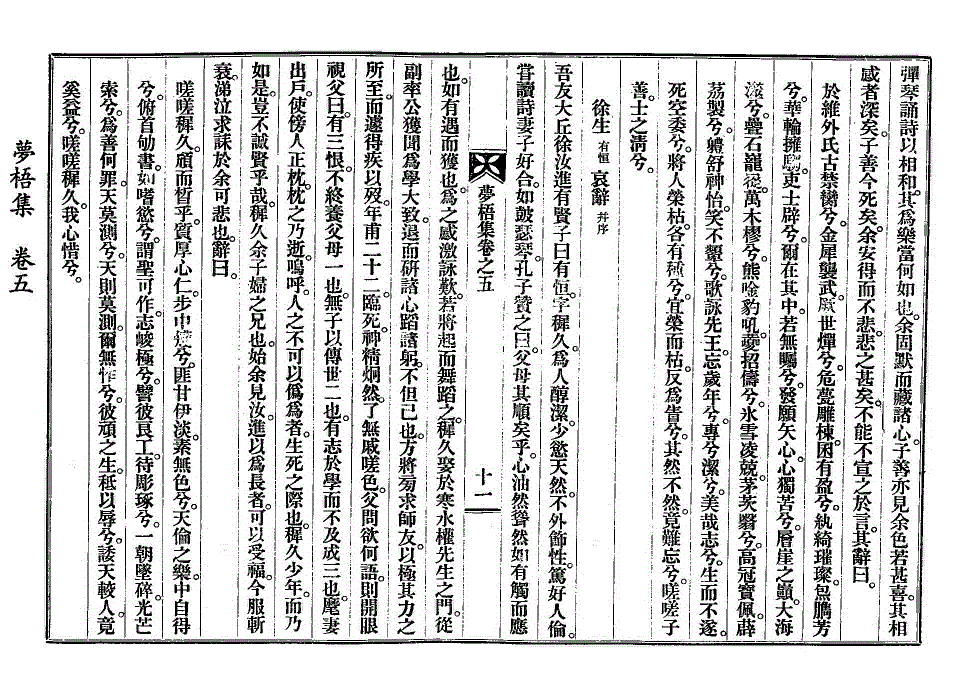 彈琴誦詩以相和。其爲樂當何如也。余固默而藏諸心。子善亦見余色若甚喜。其相
感者深矣。子善今死矣。余安得而不悲。悲之甚矣。不能不宣之於言。其辭曰。
於維外氏古禁臠兮。金犀襲武厥世燀兮。危甍雕棟囷有盈兮。紈綺璀璨炰鵬芳
兮。華輪擁騶吏士辟兮。爾在其中若無矚兮。發願矢心心獨苦兮。層崖之顚大海
滋兮。疊石巃嵸萬木樛兮。熊唫豹吼夢招儔兮。氷雪凌兢茅茨翳兮。高冠寶佩薜
荔製兮。軆舒神怡笑不顰兮。歌詠先王忘歲年兮。專兮潔兮。美哉志兮。生而不遂。
死空委兮。將人榮枯各有種兮。宜榮而枯反爲眚兮。其然不然。竟難忘兮。嗟嗟子
善。士之淸兮。
徐生 有恒 哀辭 幷序
吾友大丘徐汝進有賢子曰有恒。字穉久。爲人醇潔少慾。天然不外飾。性篤好人倫。
甞讀詩妻子好合。如皷瑟琴。孔子贊之曰父母其順矣乎。心油然聳然。如有觸而應
夢梧集卷之五
十一
也。如有遇而獲也。爲之感激詠歎。若將起而舞蹈之。穉久娶於寒水權先生之門。從
副率公獲聞爲學大致。退而硏諸心蹈諸躬。不但已也。方將旁求師友。以極其力之
所至。而遽得疾以歿。年甫二十二。臨死神精烱然。了無戚嗟色。父問欲何語。則開眼
視父曰。有三恨。不終養父母一也。無子以傳世二也。有志於學而不及成三也。麾妻
出戶。使傍人正枕。枕之乃逝。嗚呼。人之不可以僞爲者。生死之際也。穉久少年。而乃
如是。豈不誠賢乎哉。穉久余子婦之兄也。始余見汝進以爲長者。可以受福。今服斬
衰。涕泣求誄於余可悲也。辭曰。
嗟嗟穉久。頎而晳乎。質厚心仁步中矩兮。匪甘伊淡素無色兮。天倫之樂中自得
兮。俯首劬書。如嗜慾兮。謂聖可作。志峻極兮。譬彼良工待彫琢兮。一朝墜碎。光芒
索兮。爲善何罪。天莫測兮。天則莫測。爾無怍兮。彼頑之生。秪以辱兮。諉天較人。竟
奚益兮。嗟嗟穉久。我心惜兮。
夢梧集 卷五